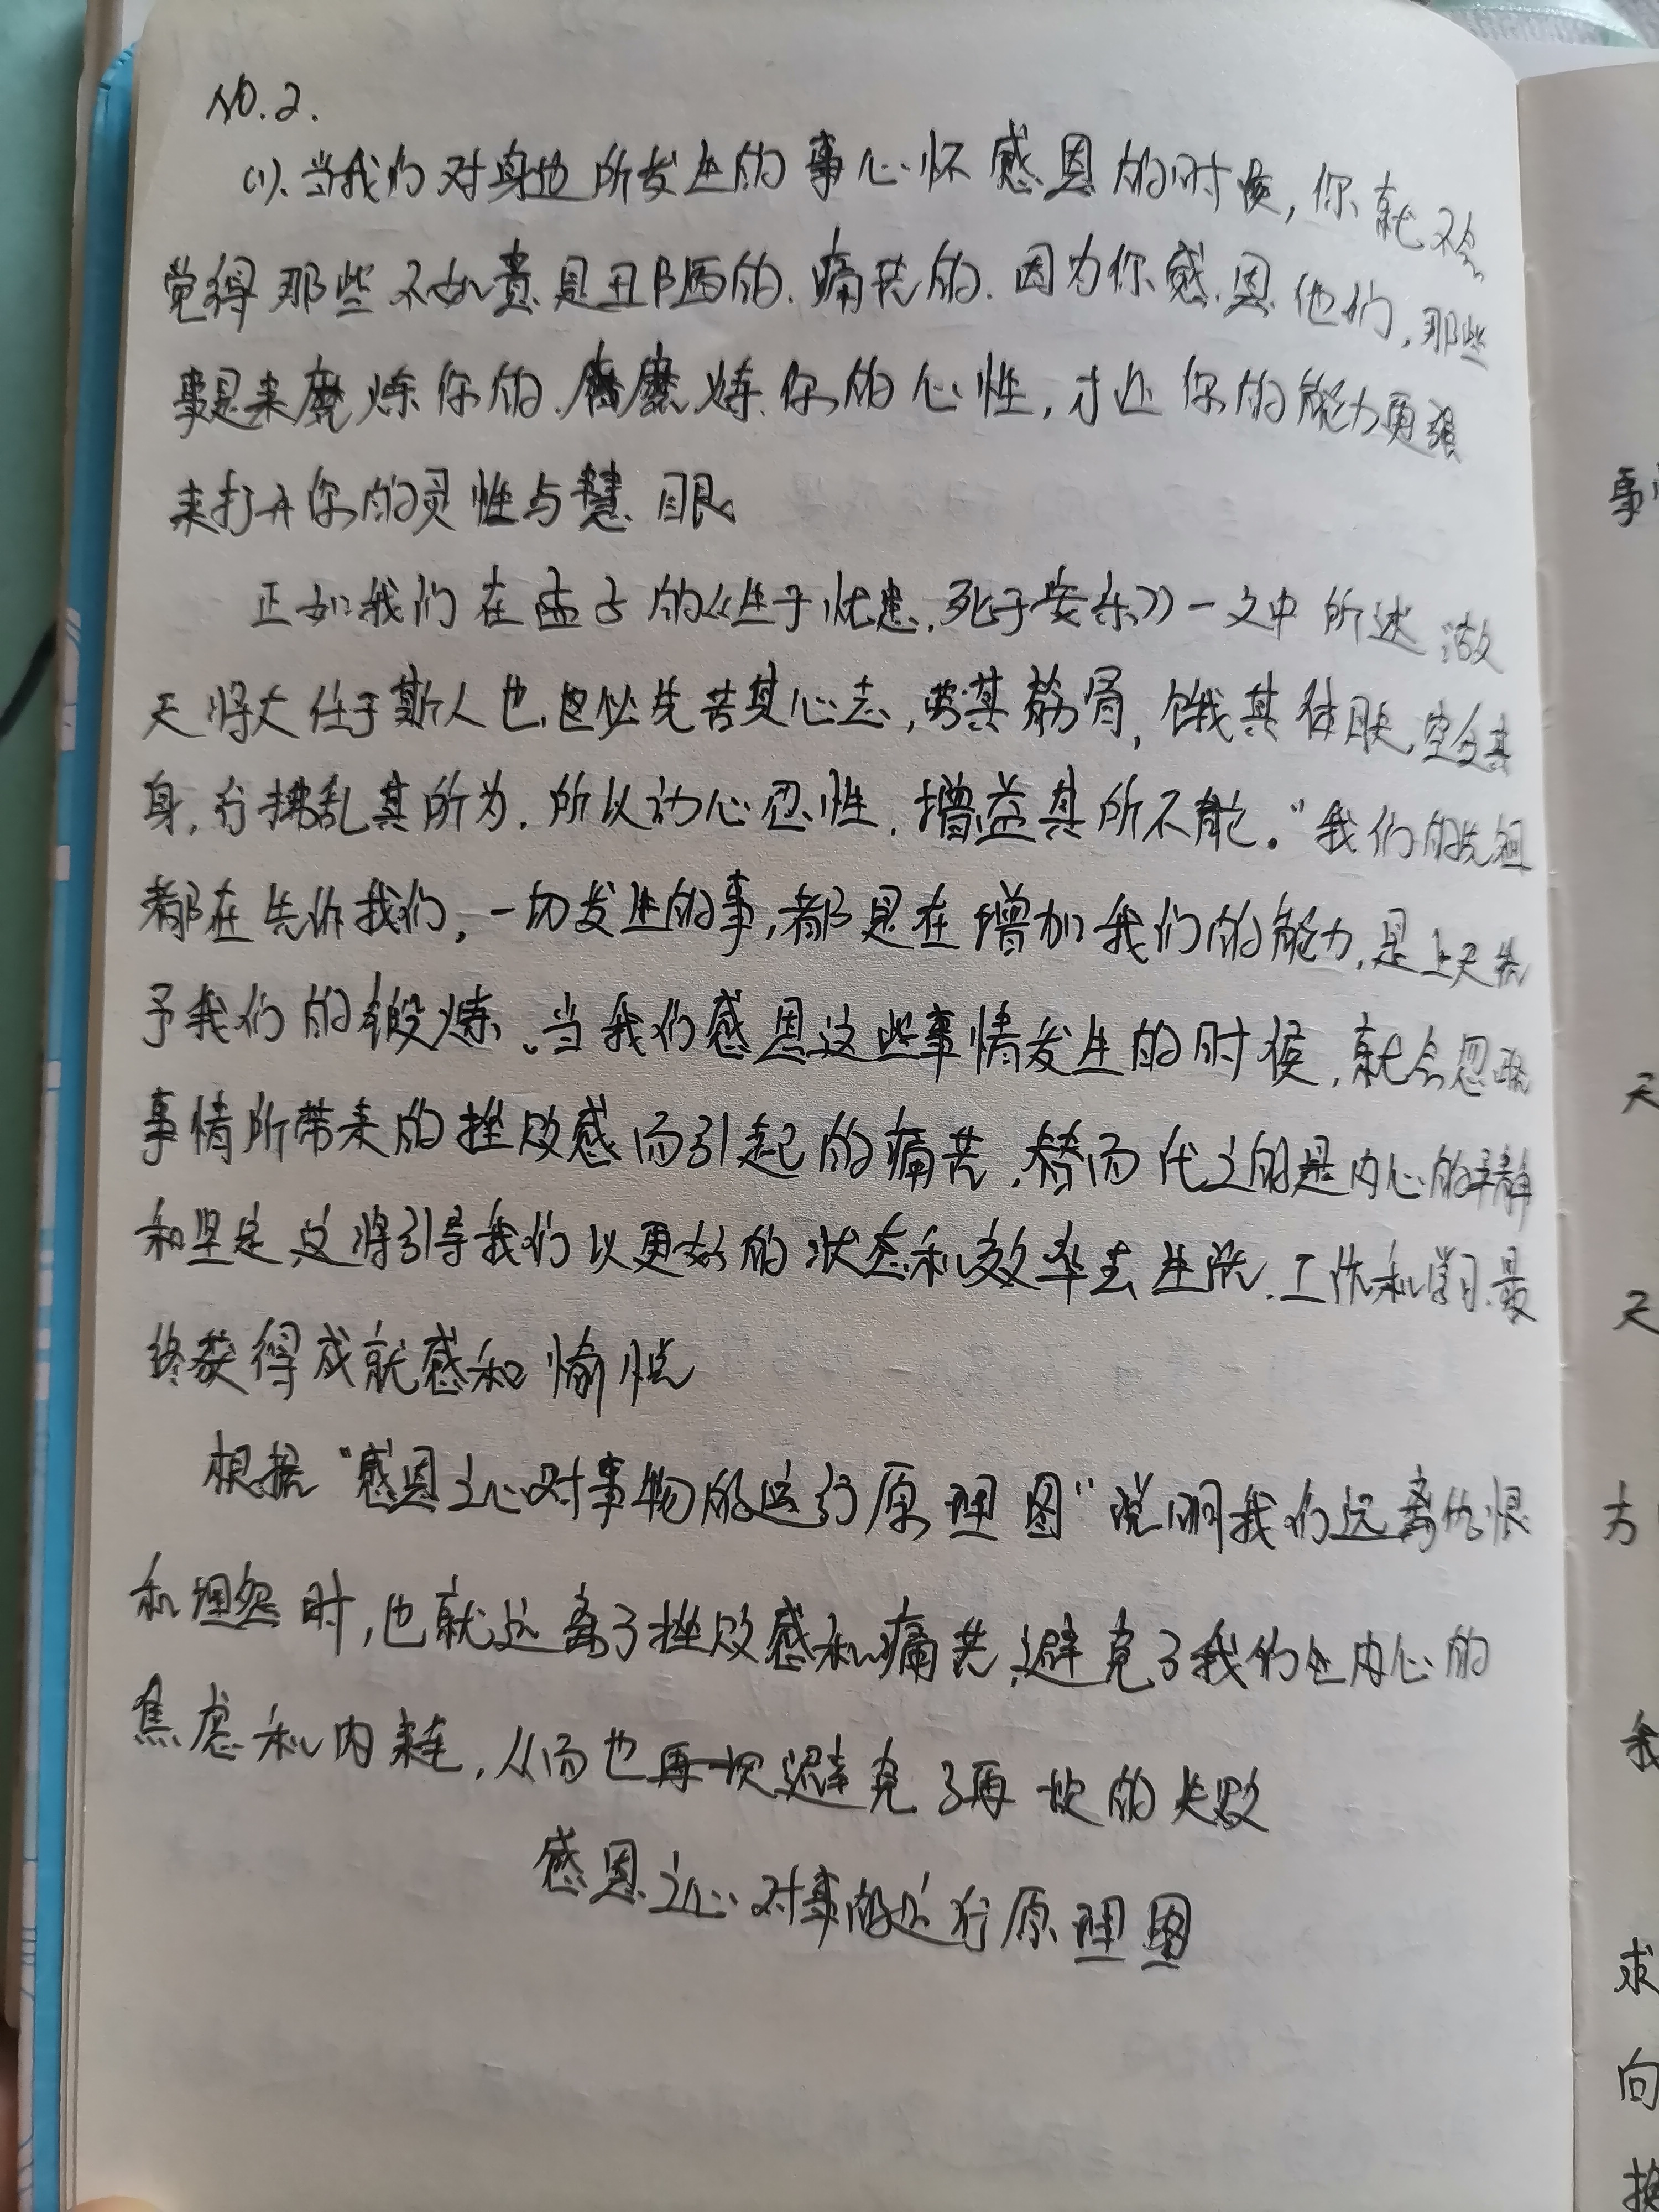 NO.2.
(1).当我们对身边所发生的事心怀感恩的时候,你就不会
觉得那些不如意是丑陋的.痛苦的.因为你感恩他们,那些
事是来磨炼你的.磨炼你的心性,才让你的能力更强
来打开你的灵性与慧眼。
正如我们在孟子的《生于忧患,死于安乐》一文中所述:故
天将大任于斯人也,必先苦其心志,劳其筋骨,饿其体肤,空乏其
身,行拂乱其所为.所以动心忍性,增益其所不能。"我们的先祖
都在告诉我们,一切发生的事,都是在增加我们的能力,是上天给
予我们的锻炼、当我们感恩这些事情发生的时候,就会忽略
事情所带来的挫败感而引起的痛苦,替而代之的是内心的平静
和坚定,这将引导我们以更好的状态和效率去生活.工作和学习.最
终获得成就感和愉悦
根据"感恩之心对事物的运行原理图"说明我们远离仇恨
和埋怨时,也就远离了挫败感和痛苦,避免了我们在内心的
焦虑和内耗,从而也再一次避免了再次的失败
感恩之心对事的运行原理图
事
天
天
方
我
求
向
换